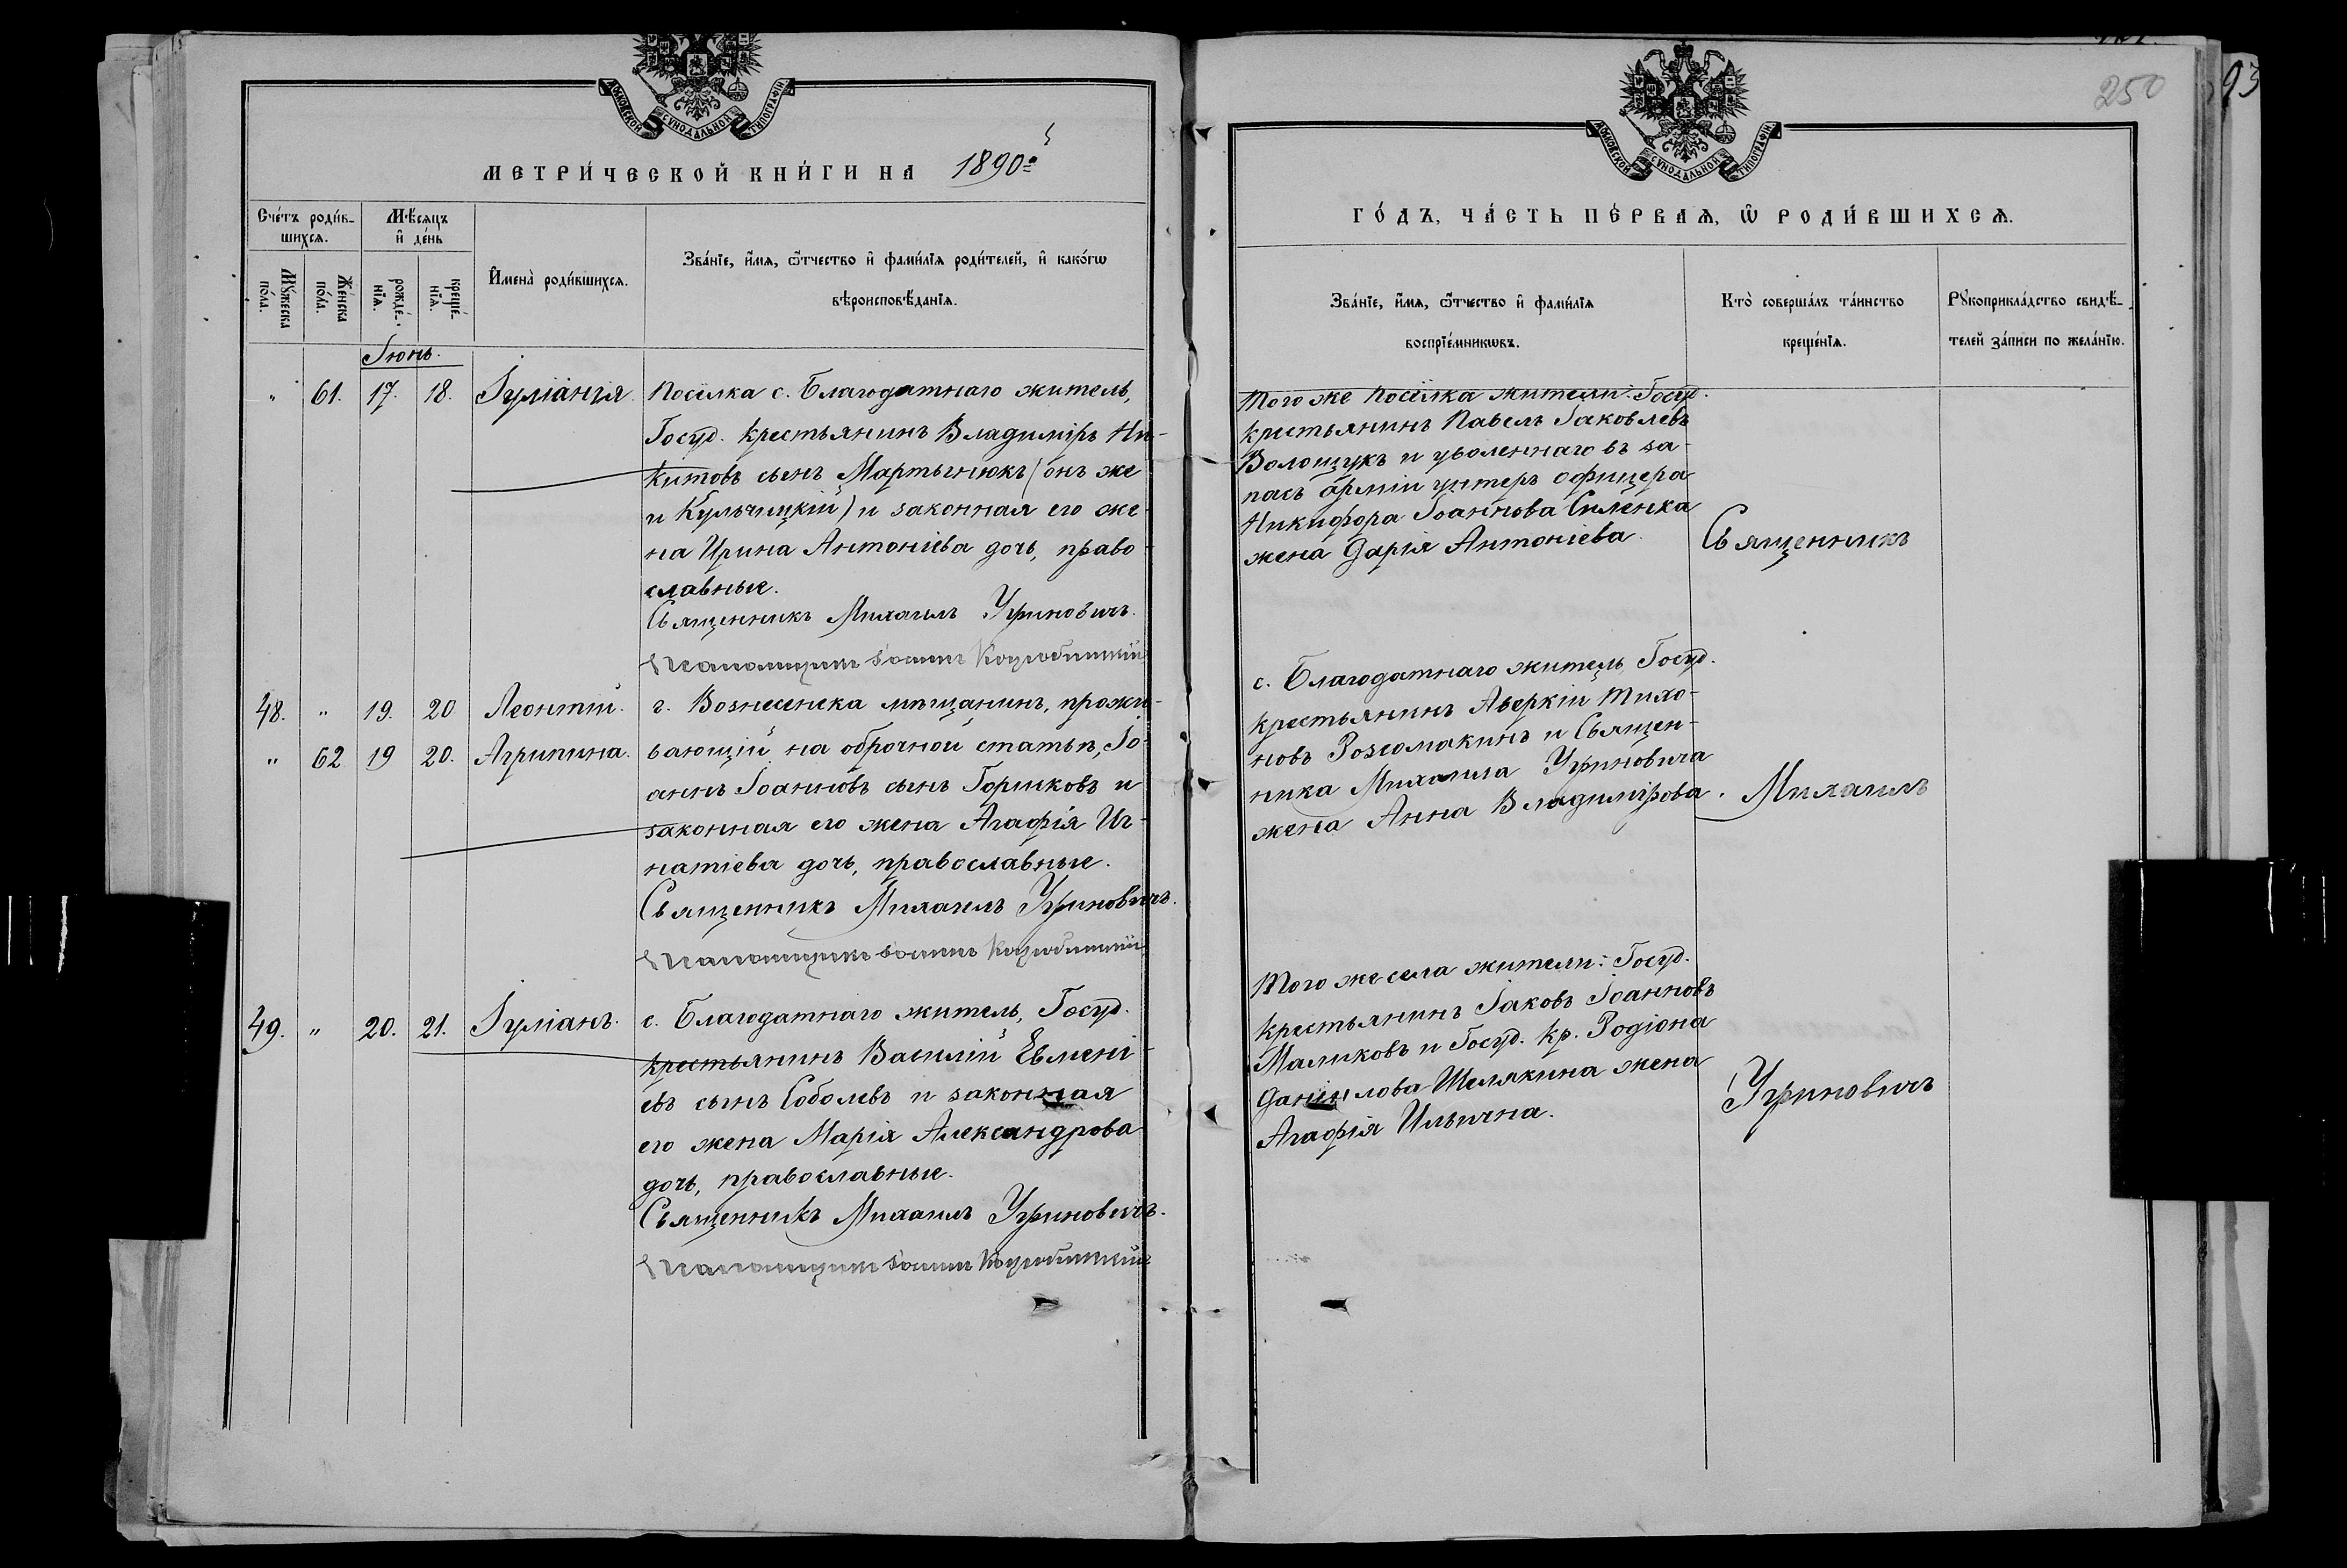 МОСКОВСКОЙ СѴНОДАЛЬНОЙ ТИПОГРАФІИ.
МЕТРИ́ЧЕСКОЙ КНИ́ГИ НА 1890й
Сче́тъ роди́в-
шихся.
Мѣ́сяцъ
и҆ де́нь
Мꙋ́жеска
по́ла.
Же́нска
по́ла.
рожде́-
нїѧ.
креще́-
нїѧ.
И҆мена̀ роди́вшихсѧ.
Зва́нїе, и҆́мѧ, ѻ҆́тчество и҆ фами́лїѧ роди́телей, и҆ како́гѡ
вѣроисповѣ́данїѧ.
Іюнь.
" 61. 17. 18. Іуліанія. Посёлка с. Благодатнаго житель,
Госуд. крестьянинъ Владиміръ Ни-
китовъ сынъ Мартынюкъ (онъ же
и Кульчицкій) и законная его же-
на Ирина Антоніева дочь, право-
славные.
Священникъ Михаилъ Угриновичъ.
Іоаннъ
48. " 19. 20 Леонтій. г. Вознесенска мѣщанинъ, прожи-
" 62 19 20. Агрипина. вающій на оброчной статьѣ, Іо-
аннъ Іоанновъ сынъ Горшковъ и
законная его жена Агафія Иг-
натіева дочь, православные.
Священникъ Михаилъ Угриновичъ.
Іоаннъ
49. " 20. 21. Іуліанъ. с. Благодатнаго житель, Госуд.
крестьянинъ Василій Евмені-
евъ сынъ Соболевъ и законная
его жена Марія Александрова
дочь, православные.
Священникъ Михаилъ Угриновичъ.
Іоаннъ
250
93
МОСКОВСКОЙ СѴНОДАЛЬНОЙ ТИПОГРАФІИ.
ГО́ДЪ, ЧА́СТЬ ПЕ́РВАѦ, Ѡ РОДИ́ВШИХСѦ.
Зва́нїе, и҆́мѧ, ѻ҆́тчество и҆ фами́лїѧ
воспрїе́мникѡвъ.
Кто̀ соверша́лъ та́инство
креще́нїѧ.
Рꙋкоприкла́дство свидѣ́-
телей за́писи по жела́нїю.
Того же посёлка жители: Госуд.
крестьянинъ Павелъ Іаковлевъ
Волощукъ и уволеннаго въ за-
пасъ арміи унтеръ офицера
Никифора Іоаннова Силенка
жена Дарія Антоніева.
Священникъ
с. Благодатнаго житель, Госуд.
крестьянинъ Аверкій Тихо-
новъ Розгомакинъ и Священ-
ника Михаила Угриновича
жена Анна Владимірова.
Михаилъ
Того же села жители: Госуд.
крестьянинъ Іаковъ Іоанновъ
Маликовъ и Госуд. кр. Родіона
Данилова Шелякина жена
Агафія Ильична.
Угриновичъ